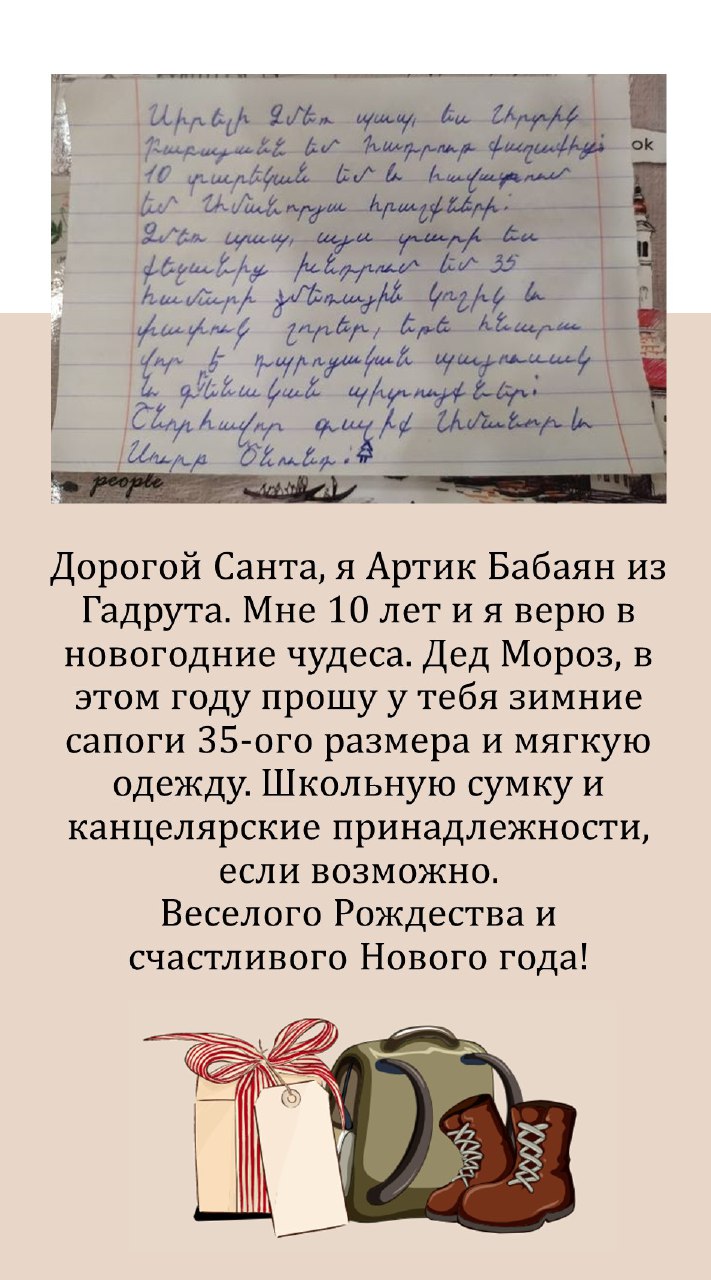 Սիրելի Ձմեռ պապ, ես Արտիկ
Բաբայանն եմ Հադրութ քաղաքից։
10 տարեկան եմ և հավատում
եմ Ամանորյա հրաշքների։
Ձմեռ պապ, այս տարի ես
քեզանից խնդրում եմ 35
համարի ձմեռային կոշիկ և
փափուկ շորեր, եթե հնարա
վոր է դպրոցական պայուսակ
և գրենական պիտույքներ։
Շնորհավոր գալիք Ամանոր և
Սուրբ Ծնունդ։
ok
people
Дорогой Санта, я Артик Бабаян из
Гадрута. Мне 10 лет и я верю в
новогодние чудеса. Дед Мороз, в
этом году прошу у тебя зимние
сапоги 35-ого размера и мягкую
одежду. Школьную сумку и
канцелярские принадлежности,
если возможно.
Веселого Рождества и
счастливого Нового года!